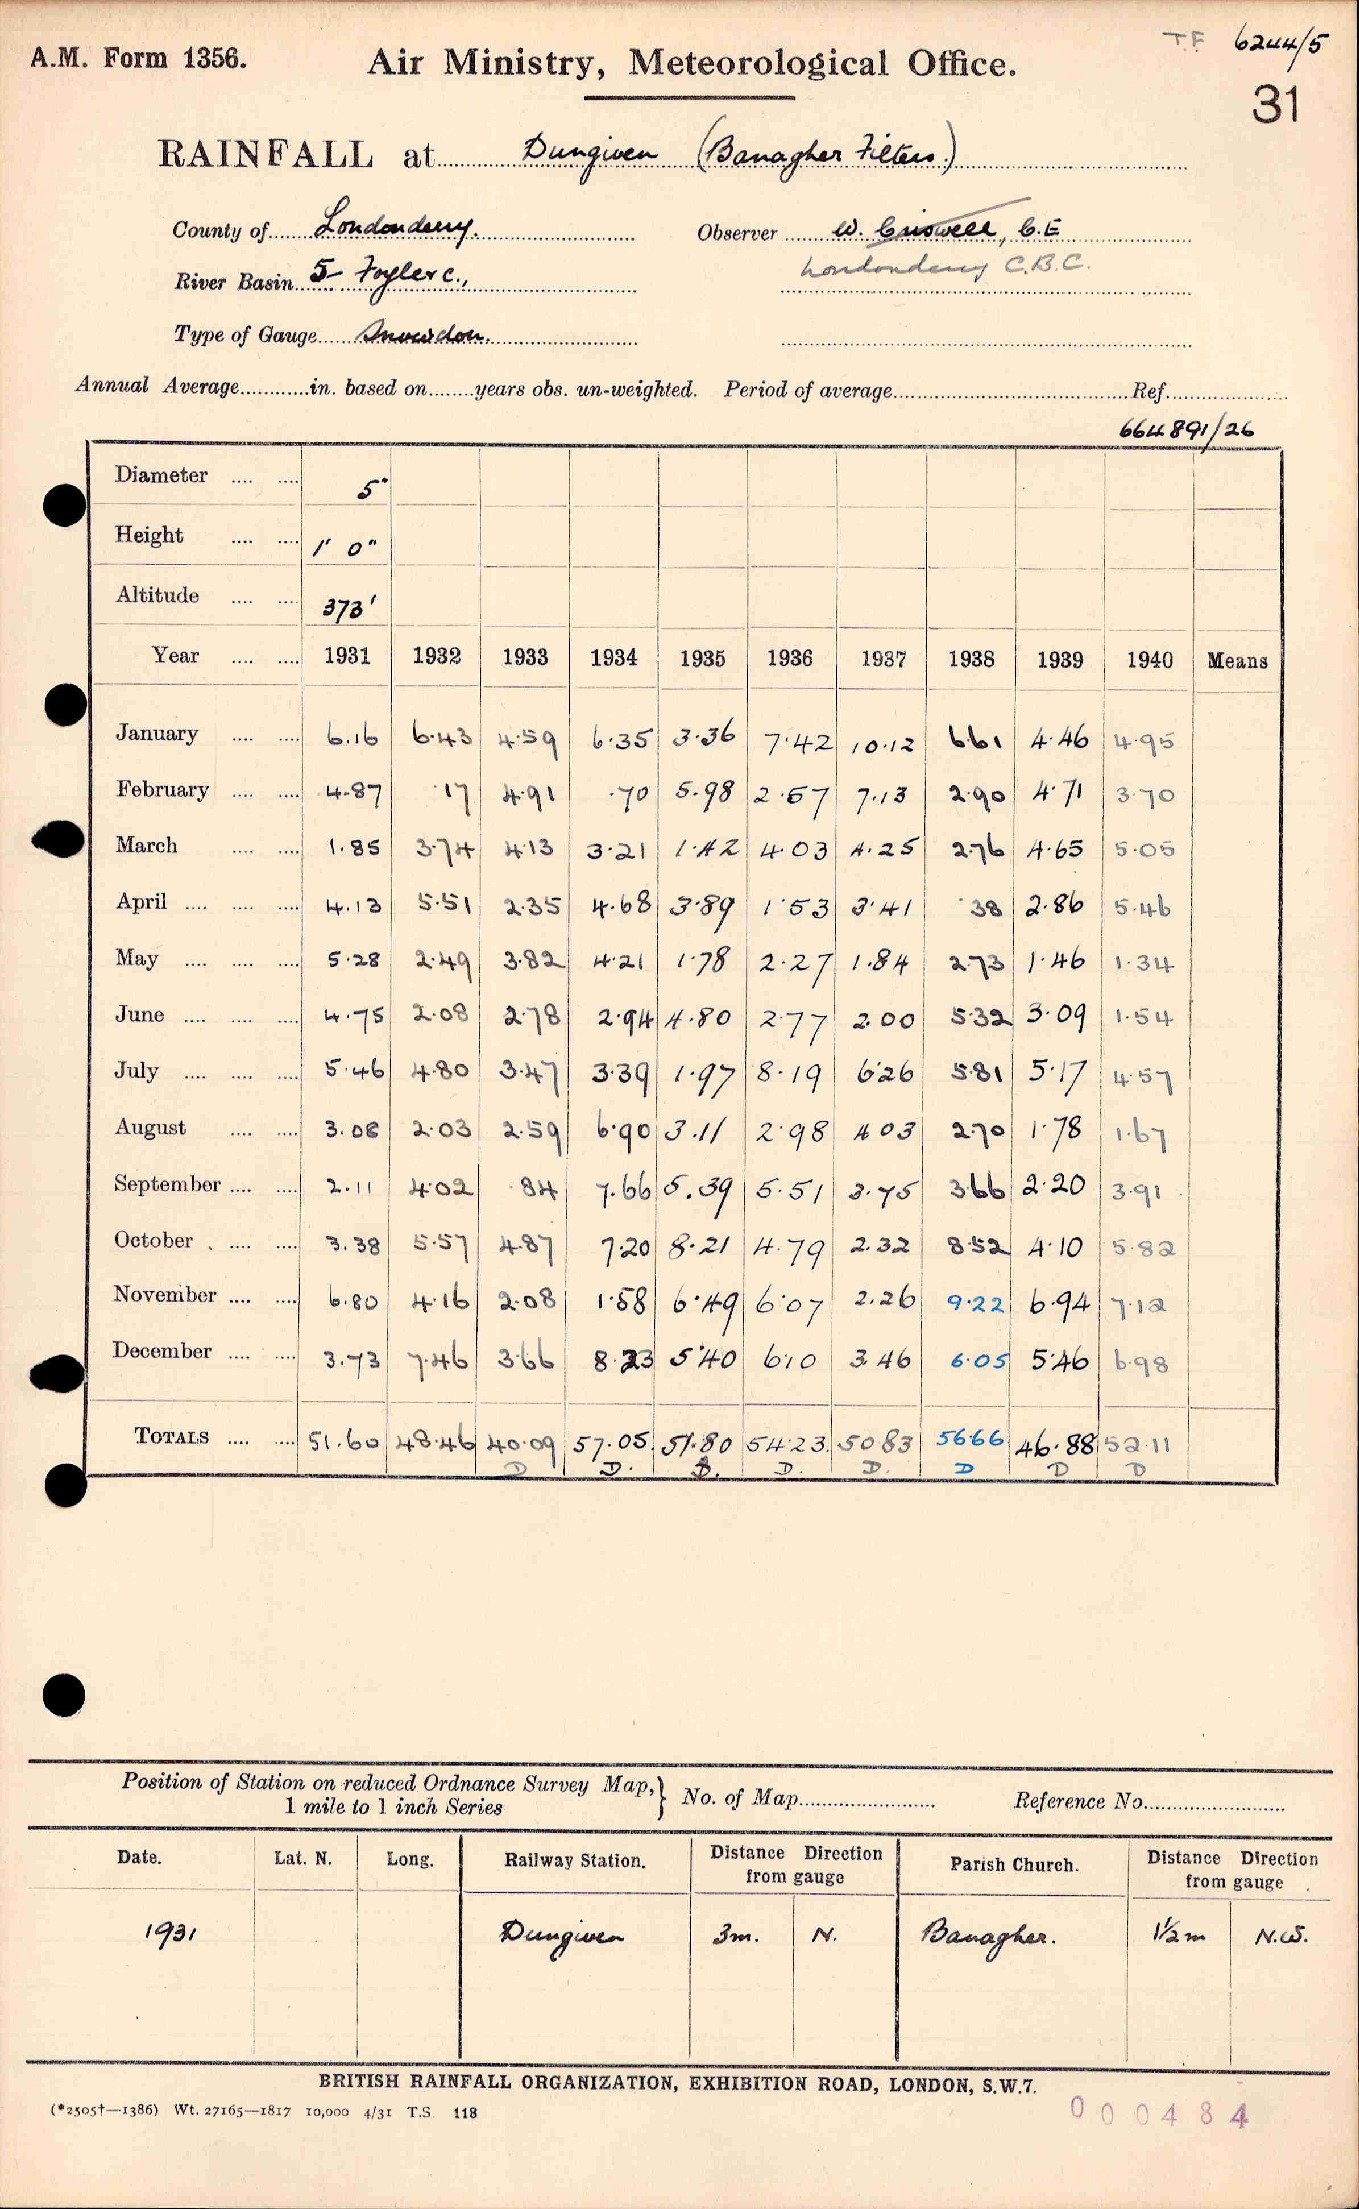 T.F 6244/5
A.M. Form 1356. Air Ministry, Meteorological Office.
31
RAINFALL at Dungiven (Banagher Filters.)
County of Londonderry. Observer W. Criswell, C.E
River Basin 5 Foyle &c., Londonderry C.B.C.
Type of Gauge Snowdon.
Annual Average in. based on years obs. un-weighted. Period of average Ref.
664891/26
Diameter 5"
Height 1' 0"
Altitude 373'
Year 1931 1932 1933 1934 1935 1936 1937 1938 1939 1940 Means
January 6.16 6.43 4.59 6.35 3.36 7.42 10.12 6.61 4.46 4.95
February 4.87 .17 4.91 .70 5.98 2.57 7.13 2.90 4.71 3.70
March 1.85 3.74 4.13 3.21 1.42 4.03 4.25 2.76 4.65 5.05
April 4.13 5.51 2.35 4.68 3.89 1.53 3.41 .38 2.86 5.46
May 5.28 2.49 3.82 4.21 1.78 2.27 1.84 2.73 1.46 1.34
June 4.75 2.08 2.78 2.94 4.80 2.77 2.00 5.32 3.09 1.54
July 5.46 4.80 3.47 3.39 1.97 8.19 6.26 5.81 5.17 4.57
August 3.08 2.03 2.59 6.90 3.11 2.98 4.03 2.70 1.78 1.67
September 2.11 4.02 .84 7.66 5.39 5.51 3.75 3.66 2.20 3.91
October 3.38 5.57 4.87 7.20 8.21 4.79 2.32 8.52 4.10 5.82
November 6.80 4.16 2.08 1.58 6.49 6.07 2.26 9.22 6.94 7.12
December 3.73 7.46 3.66 8.23 5.40 6.10 3.46 6.05 5.46 6.98
TOTALS 51.60 48.46 40.09 57.05 51.80 54.23 50.83 56.66 46.88 52.11
D D. D. D. D. D D D
Position of Station on reduced Ordnance Survey Map, } No. of Map Reference No.
1 mile to 1 inch Series
Date. Lat. N. Long. Railway Station. Distance Direction from gauge Parish Church. Distance Direction from gauge
1931 Dungiven 3m. N. Banagher. 1½m N.W.
BRITISH RAINFALL ORGANIZATION, EXHIBITION ROAD, LONDON, S.W.7.
(*2505†—1386) Wt. 27165—1817 10,000 4/31 T.S. 118
000484